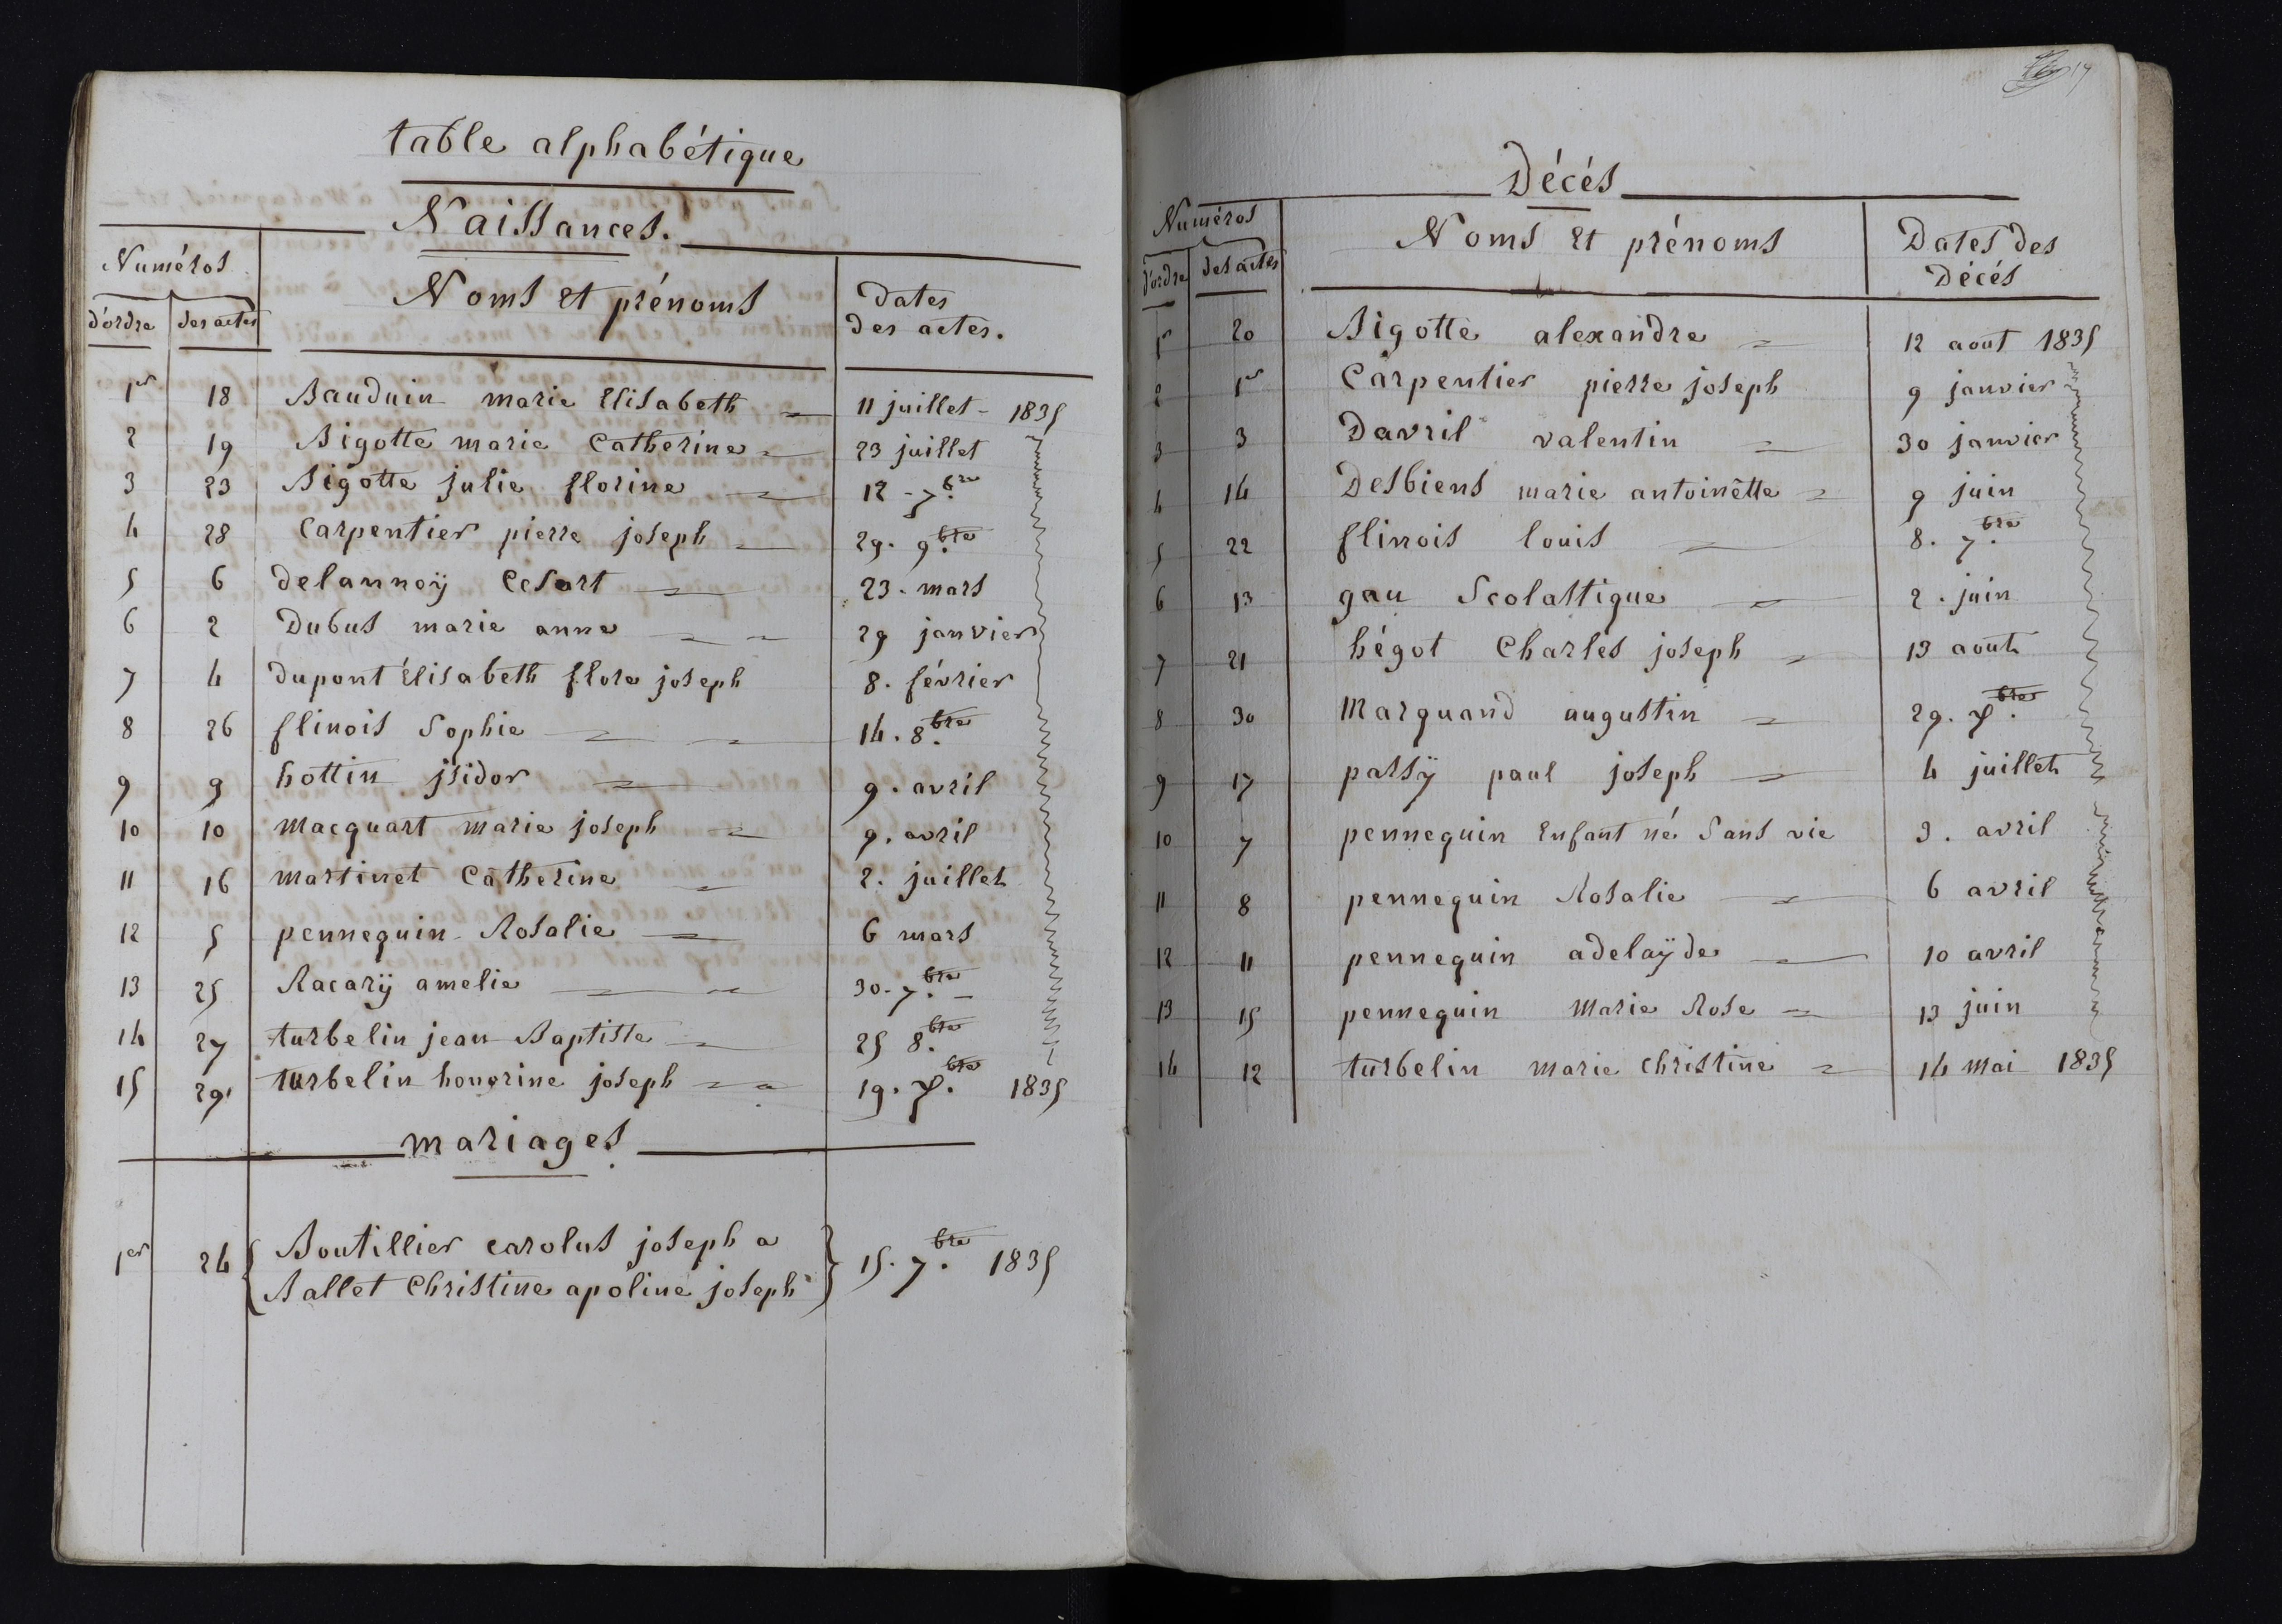 table alphabétique
Naissances.
Numéros
d'ordre des actes Noms et prénoms Dates des actes.
1er 18 Bauduin marie Elisabeth 11 juillet - 1835
2 19 Bigotte marie Catherine 23 juillet
3 23 Bigotte julie florine 12 - 7.bre
4 28 Carpentier pierre joseph 29. 9.bre
5 6 delannoÿ Cesart 23. mars
6 2 Dubus marie anne 29 janvier
7 4 dupont Élisabeth flore joseph 8. février
8 26 flinois Sophie 14. 8.bre
9 9 hottin jsidor 9. avril
10 10 Macquart marie joseph 9. avril
11 16 martinet Catherine 2. juillet
12 5 pennequin Rosalie 6 mars
13 25 Racarÿ amelie 30. 7.bre
14 27 turbelin jean Baptiste 25 8.bre
15 29 turbelin honorine joseph 19. Xbre. 1835
mariages
1er 24 Boutillier carolus joseph a
Ballet Christine apoline joseph 15. 7.bre 1835
17
Décés
Numéros
d'ordre des actes Noms et prénoms Dates des Décés
1er 20 Bigotte alexandre 12 aout 1835
2 1er Carpentier pierre joseph 9 janvier
3 3 Davril valentin 30 janvier
4 14 Desbiens marie antoinette 9 juin
5 22 flinois louis 8. 7.bre
6 13 gau Scolastique 2. juin
7 21 hégot Charles joseph 13 aout
8 30 Marquand augustin 29. Xbre.
9 17 passÿ paul joseph 4 juillet
10 7 pennequin Enfant né Sans vie 3. avril
11 8 pennequin Rosalie 6 avril
12 11 pennequin adelaÿde 10 avril
13 15 pennequin Marie Rose 13 juin
14 12 turbelin marie christine 14 Mai 1835